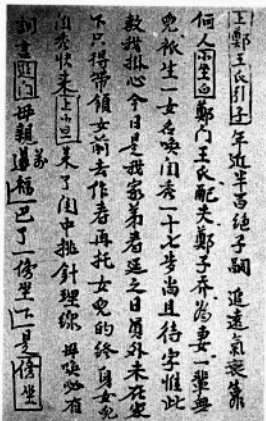 上鄭王氏引子年近半百絕子嗣追遠氣衰靠
何人小坐白鄭门王氏配夫鄭子乔為妻一輩無
兒祇生一女名喚闰秀一十七步尚且待字惟此
教我掛心今日是我家弟者延之日員外未在家
下只得带領女前去作者再托女兒的终身女兒
闰秀快来上小旦来了闰中挑針理缐毋喚必有
訓言进门母親萬福巴了一傍坐下是傍坐